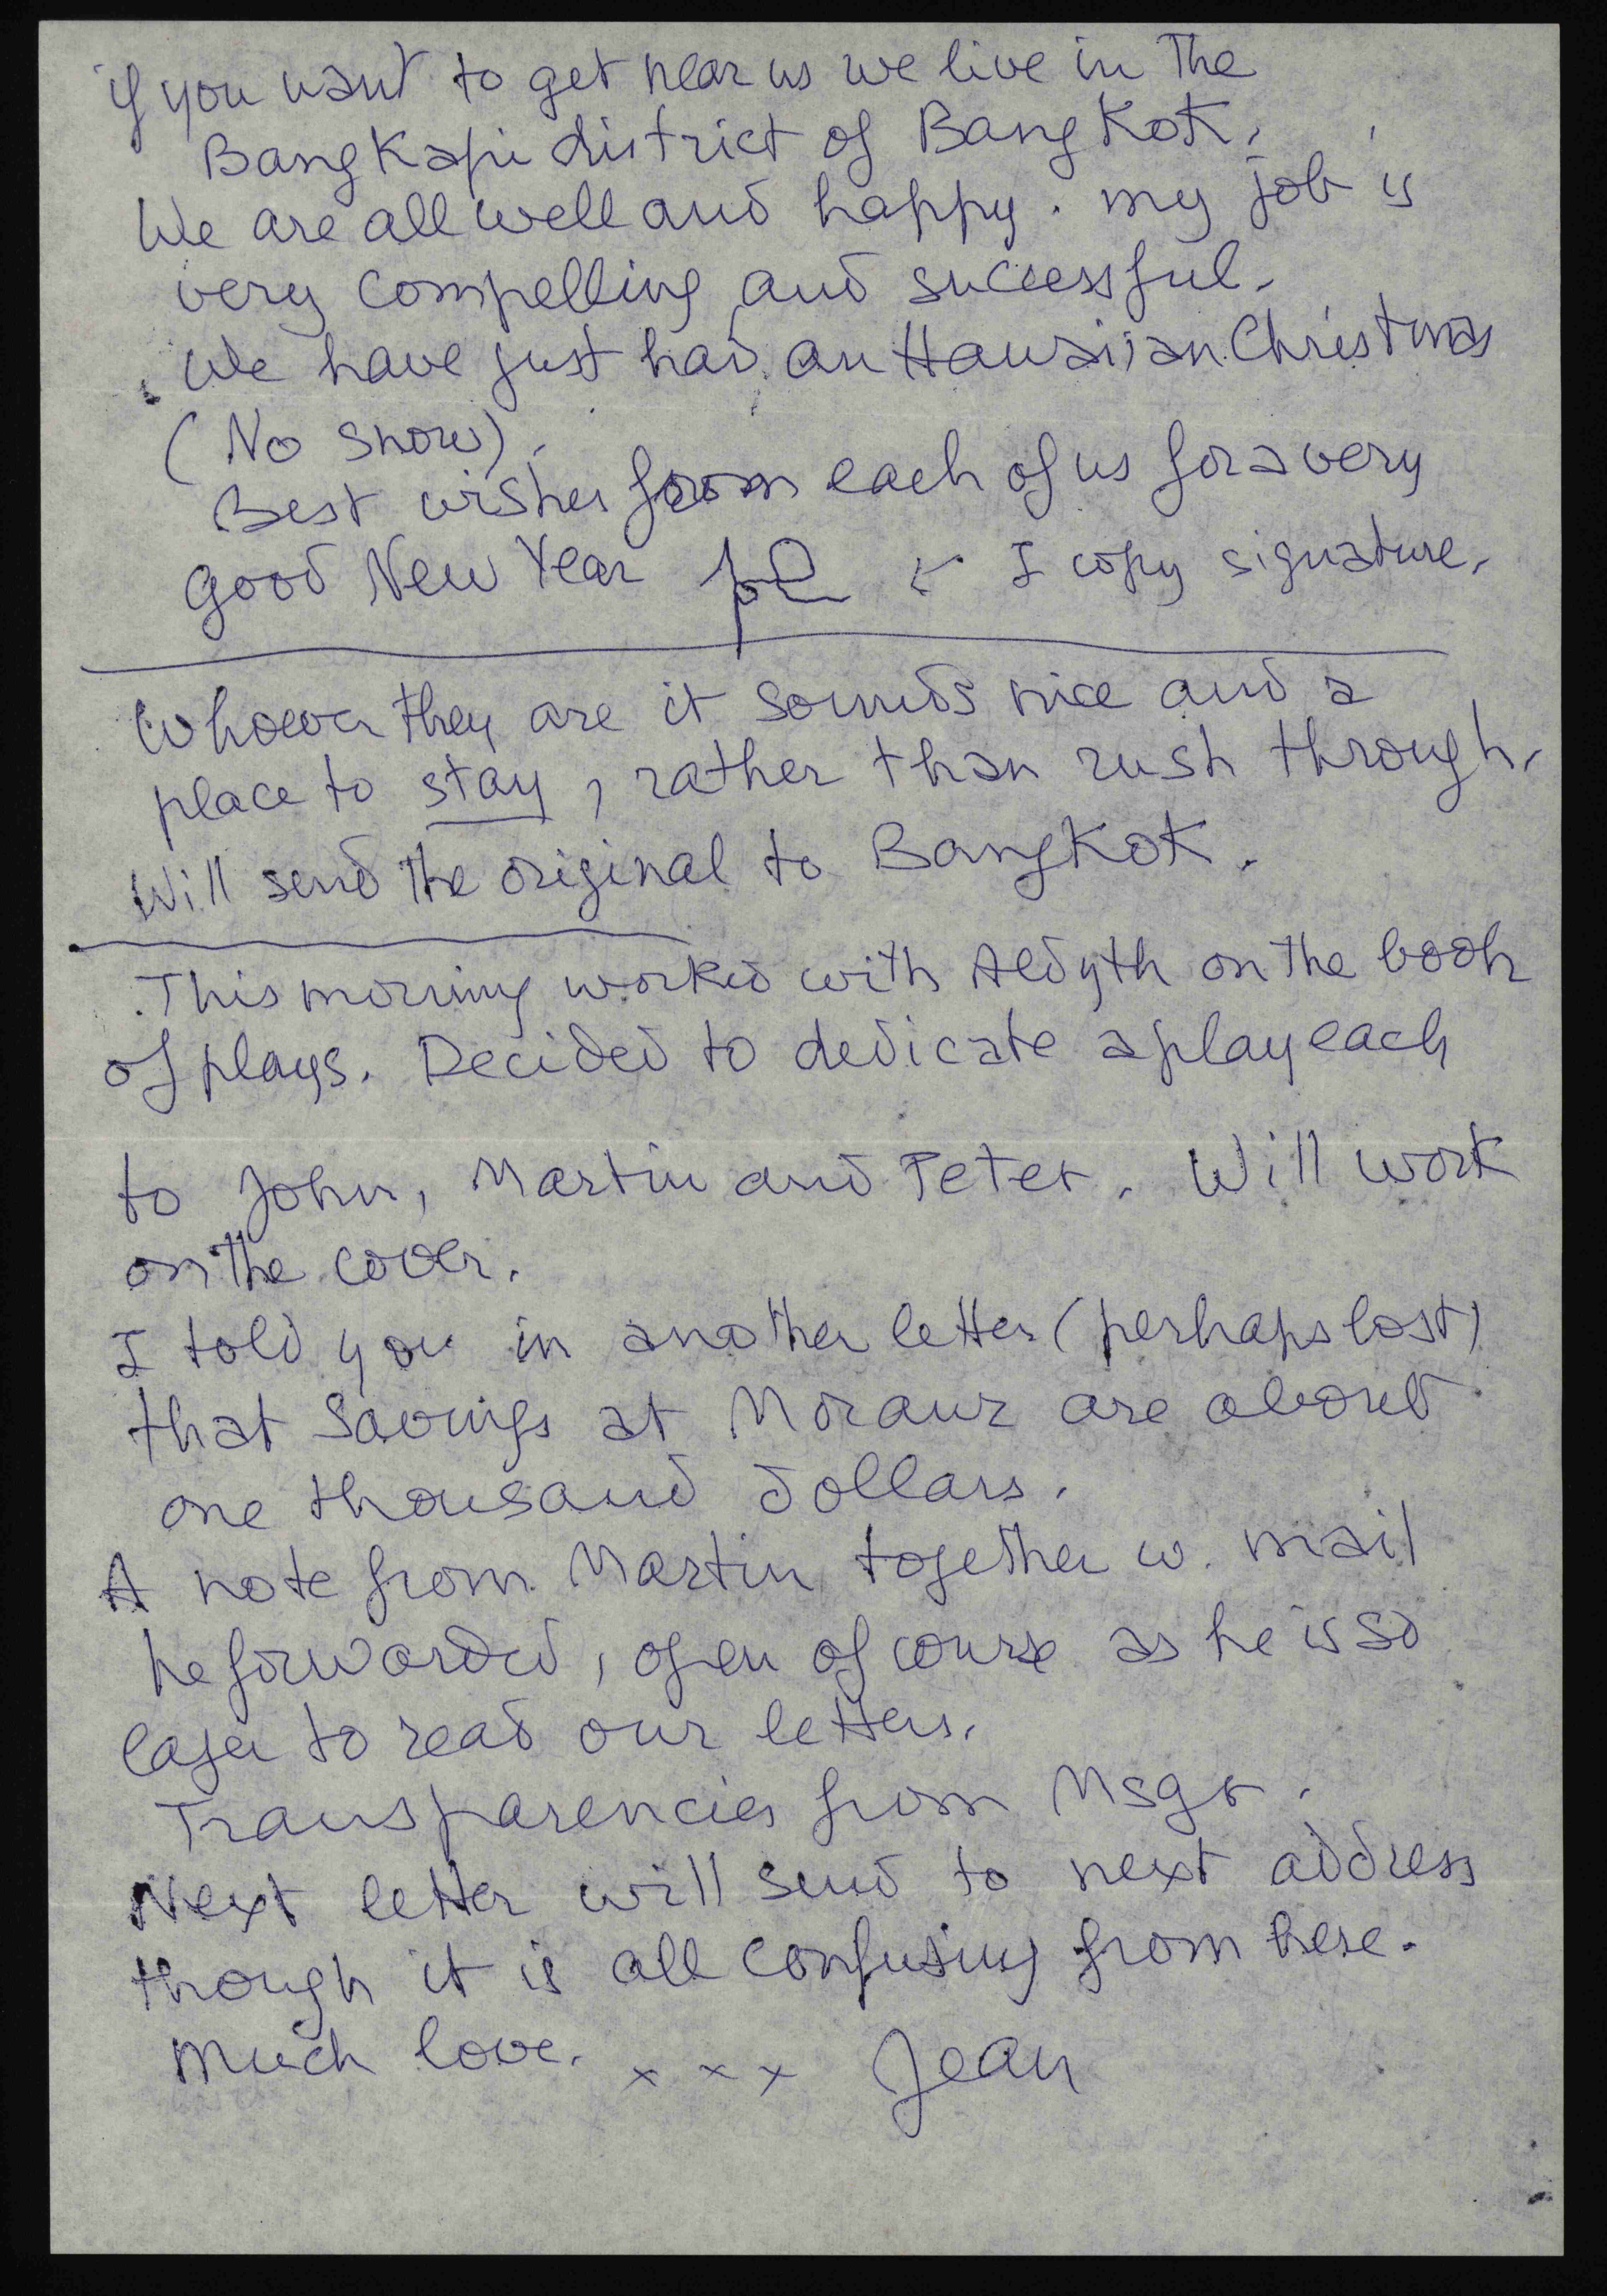 if you want to get near us we live in the
BangKapi district of BangKoK.
We are all well and happy. my job is
very compelling and successful.
We have just had an Hawaiian Christmas
(No snow).
Best wishes from each of us for a very
good New Year ← I copy signature.
Whoever they are it sounds nice and a
place to stay, rather than rush through.
Will send the original to BangKoK.
This morning worked with Aldyth on the book
of plays. Decided to dedicate a play each
to John, Martin and Peter. Will work
on the cover.
I told you in another letter (perhaps lost)
that Savings at are about
one thousand dollars.
A note from Martin together w. mail
he forwarded, open of course as he is so
eager to read our letters.
Transparencies from Msgr.
Next letter will send to next address
though it is all confusing from here.
Much love. x x x Jean